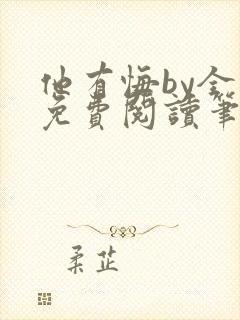 他有悔by金
免費閱讀筆
柔芷